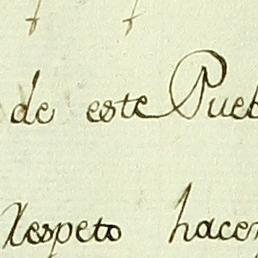 de este Pueb
Respeto hacer